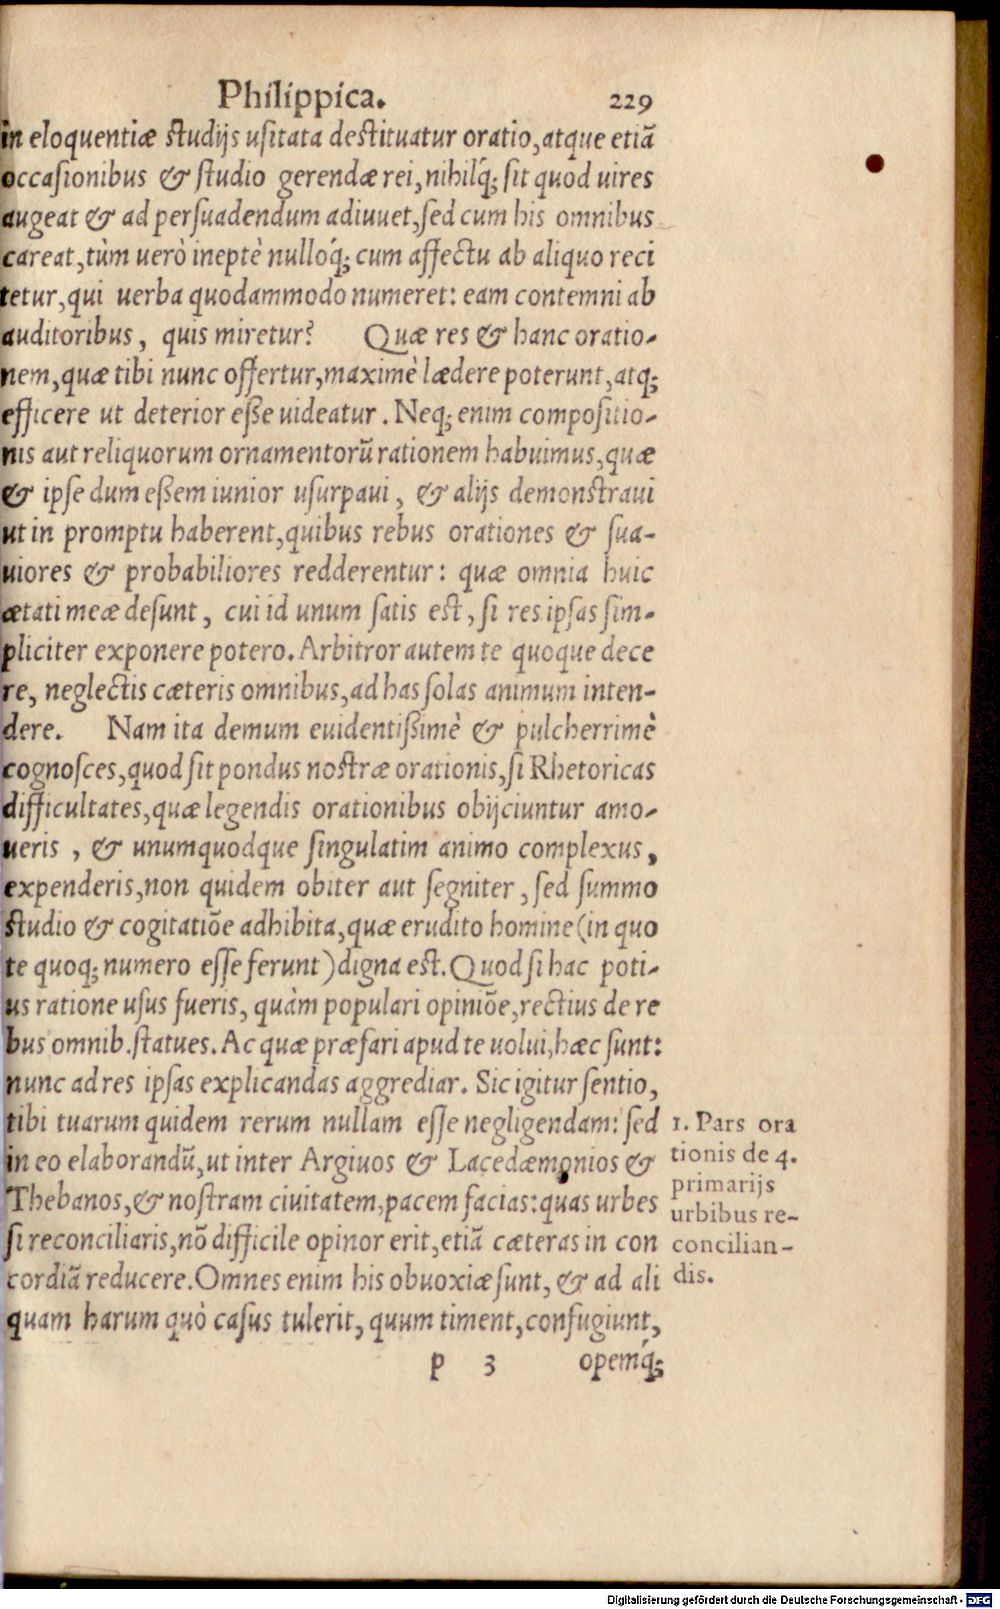 Philippica. 229
in eloquentiæ studijs usitata destituatur oratio, atque etiã
occasionibus & studio gerendæ rei, nihilq́; sit quod uires
augeat & ad persuadendum adiuuet, sed cum his omnibus
careat, tùm uerò ineptè nulloq́; cum affectu ab aliquo reci
tetur, qui uerba quodammodo numeret: eam contemni ab
auditoribus, quis miretur? Quæ res & hanc oratio-
nem, quæ tibi nunc offertur, maximè lædere poterunt, atq;
efficere ut deterior eße uideatur. Neq; enim compositio-
nis aut reliquorum ornamentorũ rationem habuimus, quæ
& ipse dum eßem iunior usurpaui, & alijs demonstraui
ut in promptu haberent, quibus rebus orationes & sua-
uiores & probabiliores redderentur: quæ omnia huic
ætati meæ desunt, cui id unum satis est, si res ipsas sim-
pliciter exponere potero. Arbitror autem te quoque dece
re, neglectis cæteris omnibus, ad has solas animum inten-
dere. Nam ita demum euidentißimè & pulcherrimè
cognosces, quod sit pondus nostræ orationis, si Rhetoricas
difficultates, quæ legendis orationibus obijciuntur amo-
ueris, & unumquodque singulatim animo complexus,
expenderis, non quidem obiter aut segniter, sed summo
studio & cogitatiõe adhibita, quæ erudito homine (in quo
te quoq; numero esse ferunt) digna est. Quod si hac poti-
us ratione usus fueris, quàm populari opiniõe, rectius de re
bus omnib. statues. Ac quæ præfari apud te uolui, hæc sunt:
nunc ad res ipsas explicandas aggrediar. Sic igitur sentio,
tibi tuarum quidem rerum nullam esse negligendam: sed
in eo elaborandũ, ut inter Argiuos & Lacedæmonios &
Thebanos, & nostram ciuitatem, pacem facias: quas urbes
si reconciliaris, nõ difficile opinor erit, etiã cæteras in con
cordiã reducere. Omnes enim his obuoxiæ sunt, & ad ali
quam harum quò casus tulerit, quum timent, confugiunt,
p 3 opemq́;
1. Pars ora
tionis de 4.
primarijs
urbibus re-
concilian-
dis.
Digitalisierung gefördert durch die Deutsche Forschungsgemeinschaft - DFG